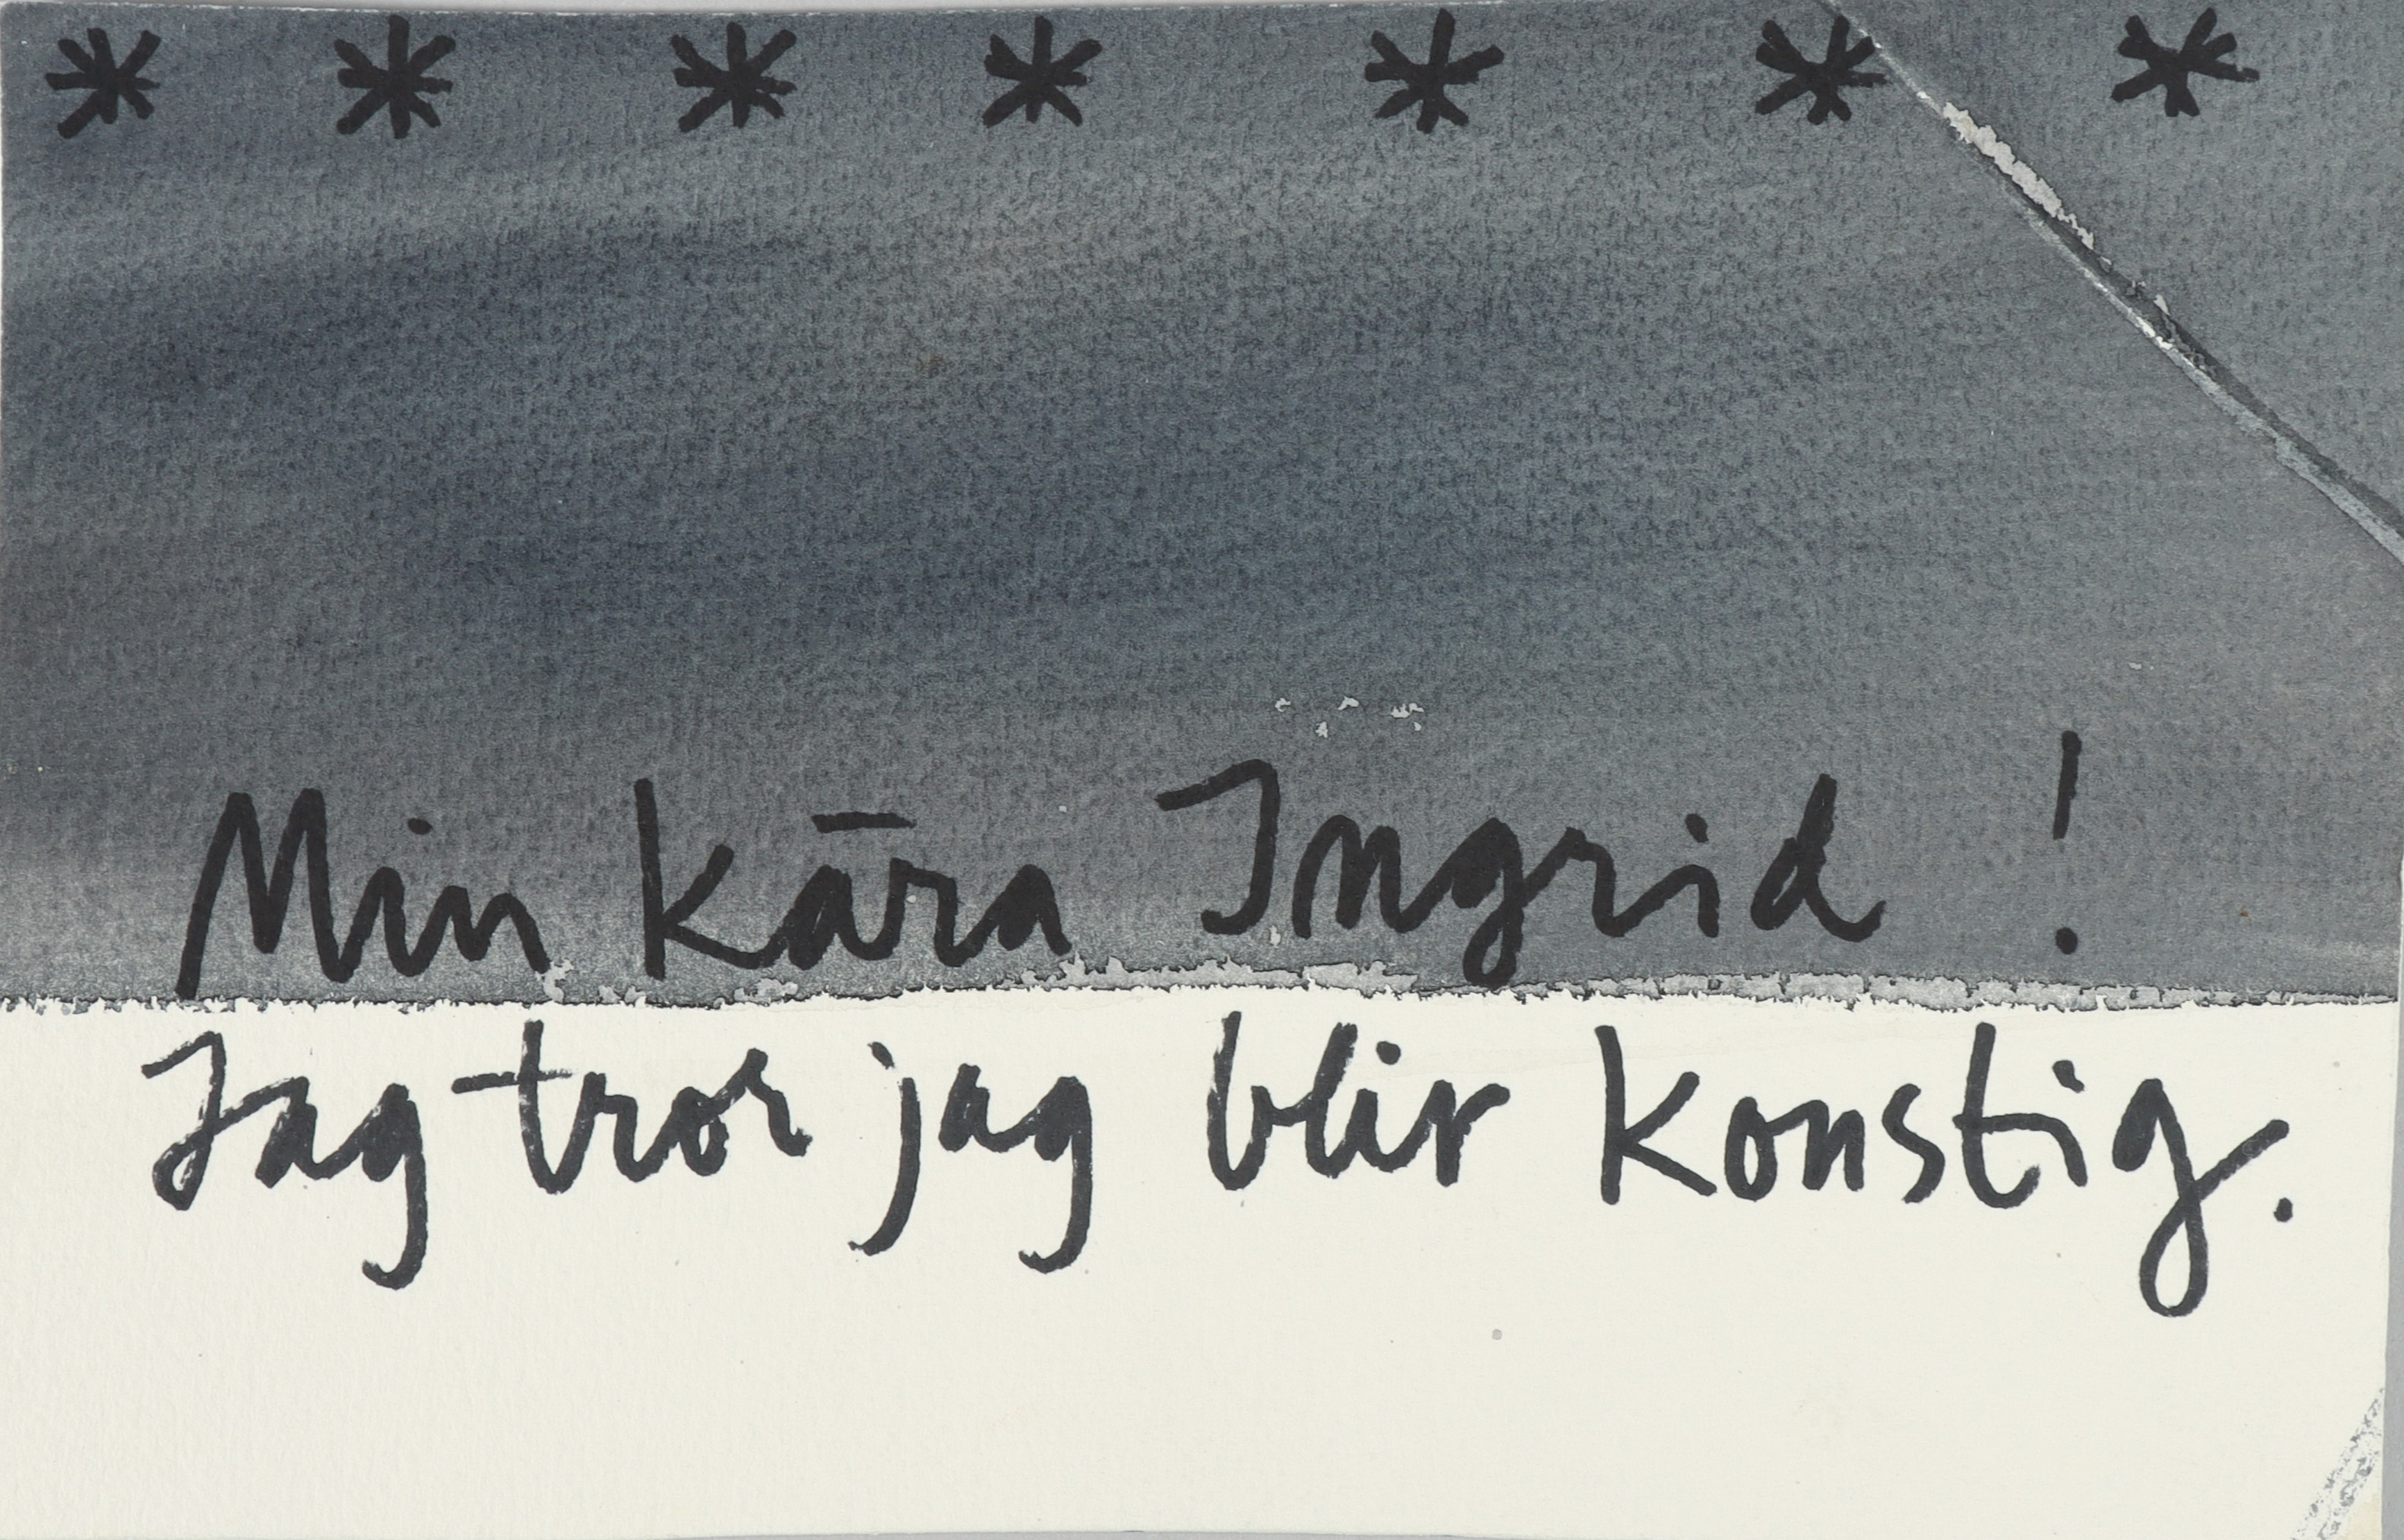 * * * * * * *
Min kära Ingrid !
Jag tror jag blir konstig.